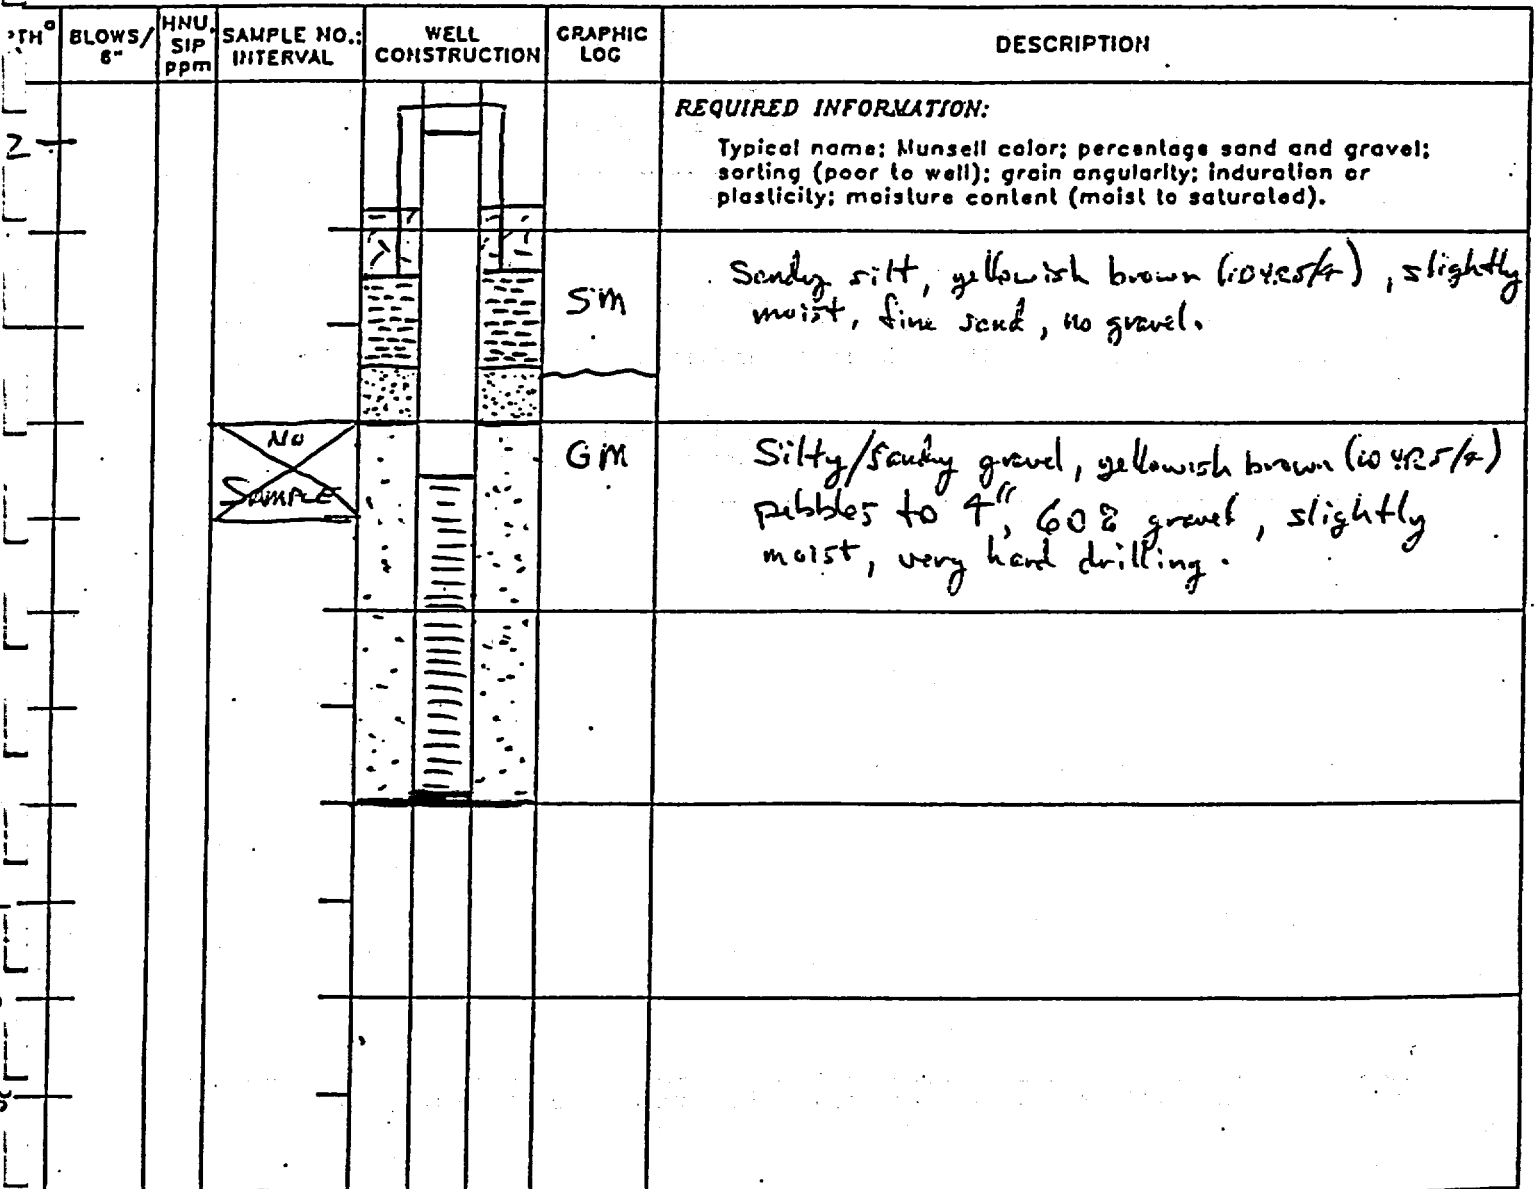 BLOWS/
6"
HNU,
SIP
ppm
SAMPLE NO.;
INTERVAL
WELL
CONSTRUCTION
GRAPHIC
LOG
DESCRIPTION
REQUIRED INFORMATION:
Typical name; Munsell color; percentage sand and gravel;
sorting (poor to well); grain angularity; induration or
plasticity; moisture content (moist to saturated).
2
SM
Sandy silt, yellowish brown (10YR5/4), slightly
moist, fine sand, no gravel.
No
SAMPLE
GM
Silty/sandy gravel, yellowish brown (10YR5/4)
pebbles to 4", 60% gravel, slightly
moist, very hard drilling.